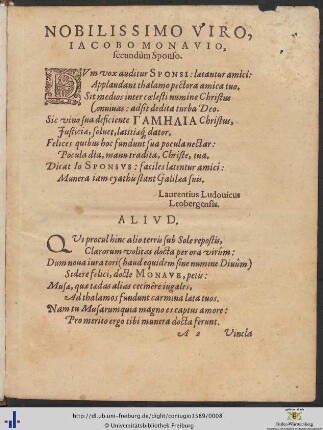 NOBILISSIMO VIRO,
IACOBO MONAVIO,
secundùm Sponso.
DVm vox auditur SPONSI: lætantur amici:
Applaudant thalamo pectora amica tuo,
Sit medios inter cœlesti numine Christus
Conuiuas: adsit dedita turba Deo.
Sic vino sua deficiente ΓΑΜΗΛΙΑ Christus,
Iusticia, soluet, latitiaq́; dator.
Felices quibus hoc fundunt sua pocula nectar:
Pocula dia, manu tradita, Christe, tua.
Dicat Io SPONSVS: faciles lætentur amici:
Munera iam cyathi stant Galilæa suis.
Laurentius Ludouicus
Leobergensis.
ALIVD.
QVi procul hinc alio terris sub Sole repostis,
Clarorum volitas docta per ora virûm:
Dum noua iura tori (haud equidem sine numine Diuûm)
Sidere felici, docte MONAVE, petis:
Musæ, quæ tædas alias cecinêre iugales,
Ad thalamos fundunt carmina læta tuos.
Nam tu Musarum quia magno es captus amore:
Pro merito ergo tibi munera docta ferunt.
A 2 Vincla
http://dl.ub.uni-freiburg.de/diglit/coniugio1589/0008
© Universitätsbibliothek Freiburg
Baden-Württemberg